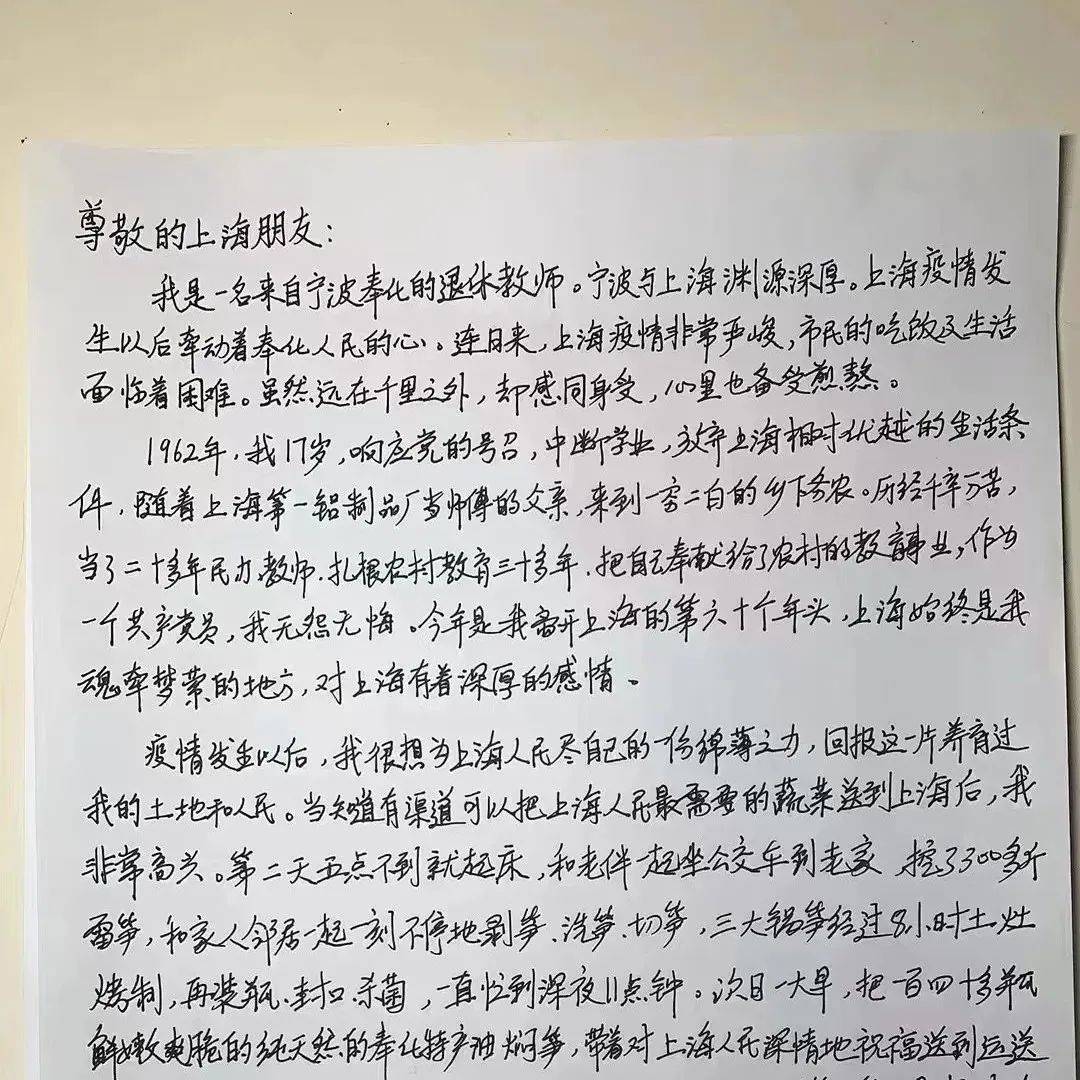 尊敬的上海朋友:
我是一名来自宁波奉化的退休教师。宁波与上海渊源深厚。上海疫情发
生以后牵动着奉化人民的心。连日来,上海疫情非常严峻,市民的吃饭及生活
面临着困难。虽然远在千里之外,却感同身受,心里也备受煎熬。
1962年,我17岁,响应党的号召,中断学业,放弃上海相对优越的生活条
件,随着上海第一铝制品厂当师傅的父亲,来到一穷二白的乡下务农。历经千辛万苦,
当了二十多年民办教师,扎根农村教育三十多年,把自己奉献给了农村的教育事业,作为
一个共产党员,我无怨无悔。今年是我离开上海的第六十个年头,上海始终是我
魂牵梦萦的地方,对上海有着深厚的感情。
疫情发生以后,我很想为上海人民尽自己的一份绵薄之力,回报这一片养育过
我的土地和人民。当知道有渠道可以把上海人民最需要的蔬菜送到上海后,我
非常高兴。第二天五点不到就起床,和老伴一起坐公交车到老家 挖了300多斤
雷笋,和家人邻居一起一刻不停地剥笋、洗笋、切笋,三大锅笋经过8小时土灶
烤制,再装瓶、封口、杀菌,一直忙到深夜11点钟。次日一大早,把一百四十多瓶
鲜嫩爽脆的纯天然的奉化特产油焖笋,带着对上海人民深情地祝福送到运送